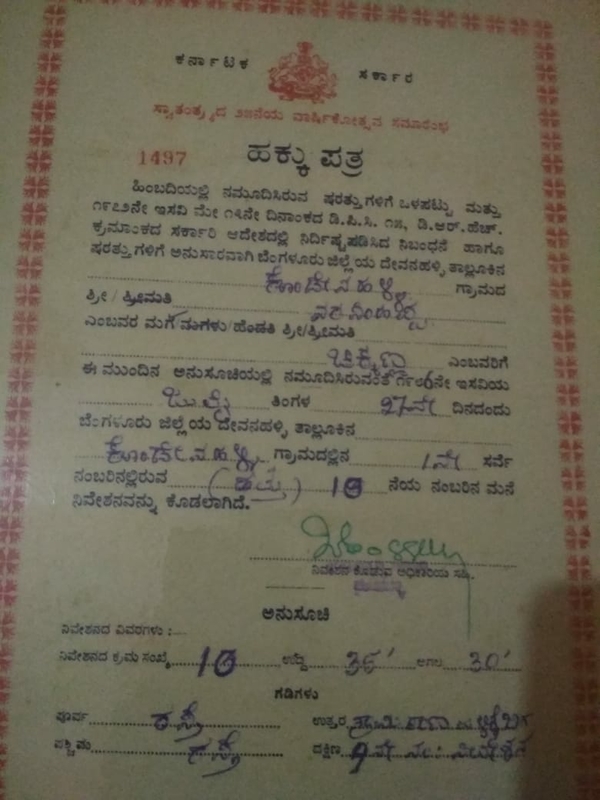 ಕರ್ನಾಟಕ ಸರ್ಕಾರ
ಸ್ವಾತಂತ್ರ್ಯದ ೨೫ನೆಯ ವಾರ್ಷಿಕೋತ್ಸವ ಸಮಾರಂಭ
1497 ಹಕ್ಕು ಪತ್ರ
ಹಿಂಬದಿಯಲ್ಲಿ ನಮೂದಿಸಿರುವ ಷರತ್ತುಗಳಿಗೆ ಒಳಪಟ್ಟು ಮತ್ತು
೧೯೭೨ನೇ ಇಸವಿ ಮೇ ೧೩ನೇ ದಿನಾಂಕದ ಡಿ.ಪಿ.ಸಿ. ೧೫, ಡಿ.ಆರ್.ಹೆಚ್.
ಕ್ರಮಾಂಕದ ಸರ್ಕಾರಿ ಆದೇಶದಲ್ಲಿ ನಿರ್ದಿಷ್ಟಪಡಿಸಿದ ನಿಬಂಧನೆ ಹಾಗೂ
ಷರತ್ತುಗಳಿಗೆ ಅನುಸಾರವಾಗಿ ಬೆಂಗಳೂರು ಜಿಲ್ಲೆಯ ದೇವನಹಳ್ಳಿ ತಾಲ್ಲೂಕಿನ
ಗ್ರಾಮದ
ಶ್ರೀ / ಶ್ರೀಮತಿ
ಎಂಬವರ ಮಗ/ಮಗಳು/ಹೆಂಡತಿ ಶ್ರೀ/ಶ್ರೀಮತಿ
ಚಿಕ್ಕಣ್ಣ ಎಂಬವರಿಗೆ
ಈ ಮುಂದಿನ ಅನುಸೂಚಿಯಲ್ಲಿ ನಮೂದಿಸಿರುವಂತೆ ನೇ ಇಸವಿಯ
ಜುಲೈ ತಿಂಗಳ 27ನೇ ದಿನದಂದು
ಬೆಂಗಳೂರು ಜಿಲ್ಲೆಯ ದೇವನಹಳ್ಳಿ ತಾಲ್ಲೂಕಿನ
ಗ್ರಾಮದಲ್ಲಿನ 1ನೇ ಸರ್ವೆ
ನಂಬರಿನಲ್ಲಿರುವ (ಹತ್ತು) 10 ನೆಯ ನಂಬರಿನ ಮನೆ
ನಿವೇಶನವನ್ನು ಕೊಡಲಾಗಿದೆ.
ನಿವೇಶನ ಕೊಡುವ ಅಧಿಕಾರಿಯ ಸಹಿ.
ಅನುಸೂಚಿ
ನಿವೇಶನದ ವಿವರಗಳು :
ನಿವೇಶನದ ಕ್ರಮ ಸಂಖ್ಯೆ 10 ಉದ್ದ 36' ಅಗಲ 30'
ಗಡಿಗಳು
ಪೂರ್ವ ರಸ್ತೆ ಉತ್ತರ
ಪಶ್ಚಿಮ ರಸ್ತೆ ದಕ್ಷಿಣ 9ನೇ ನಂ: ನಿವೇಶನ